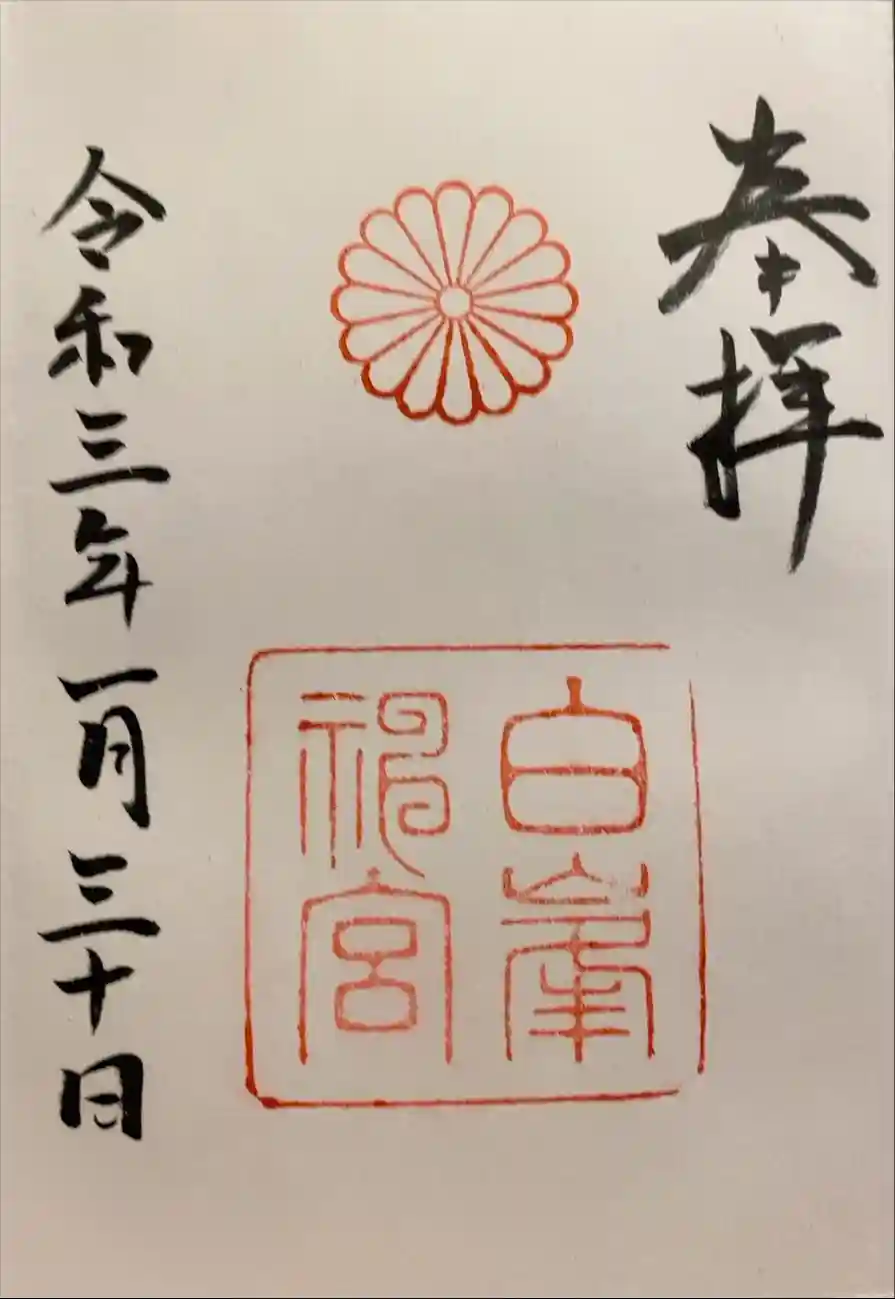 奉拝
白峯
神宮
令和三年一月三十日